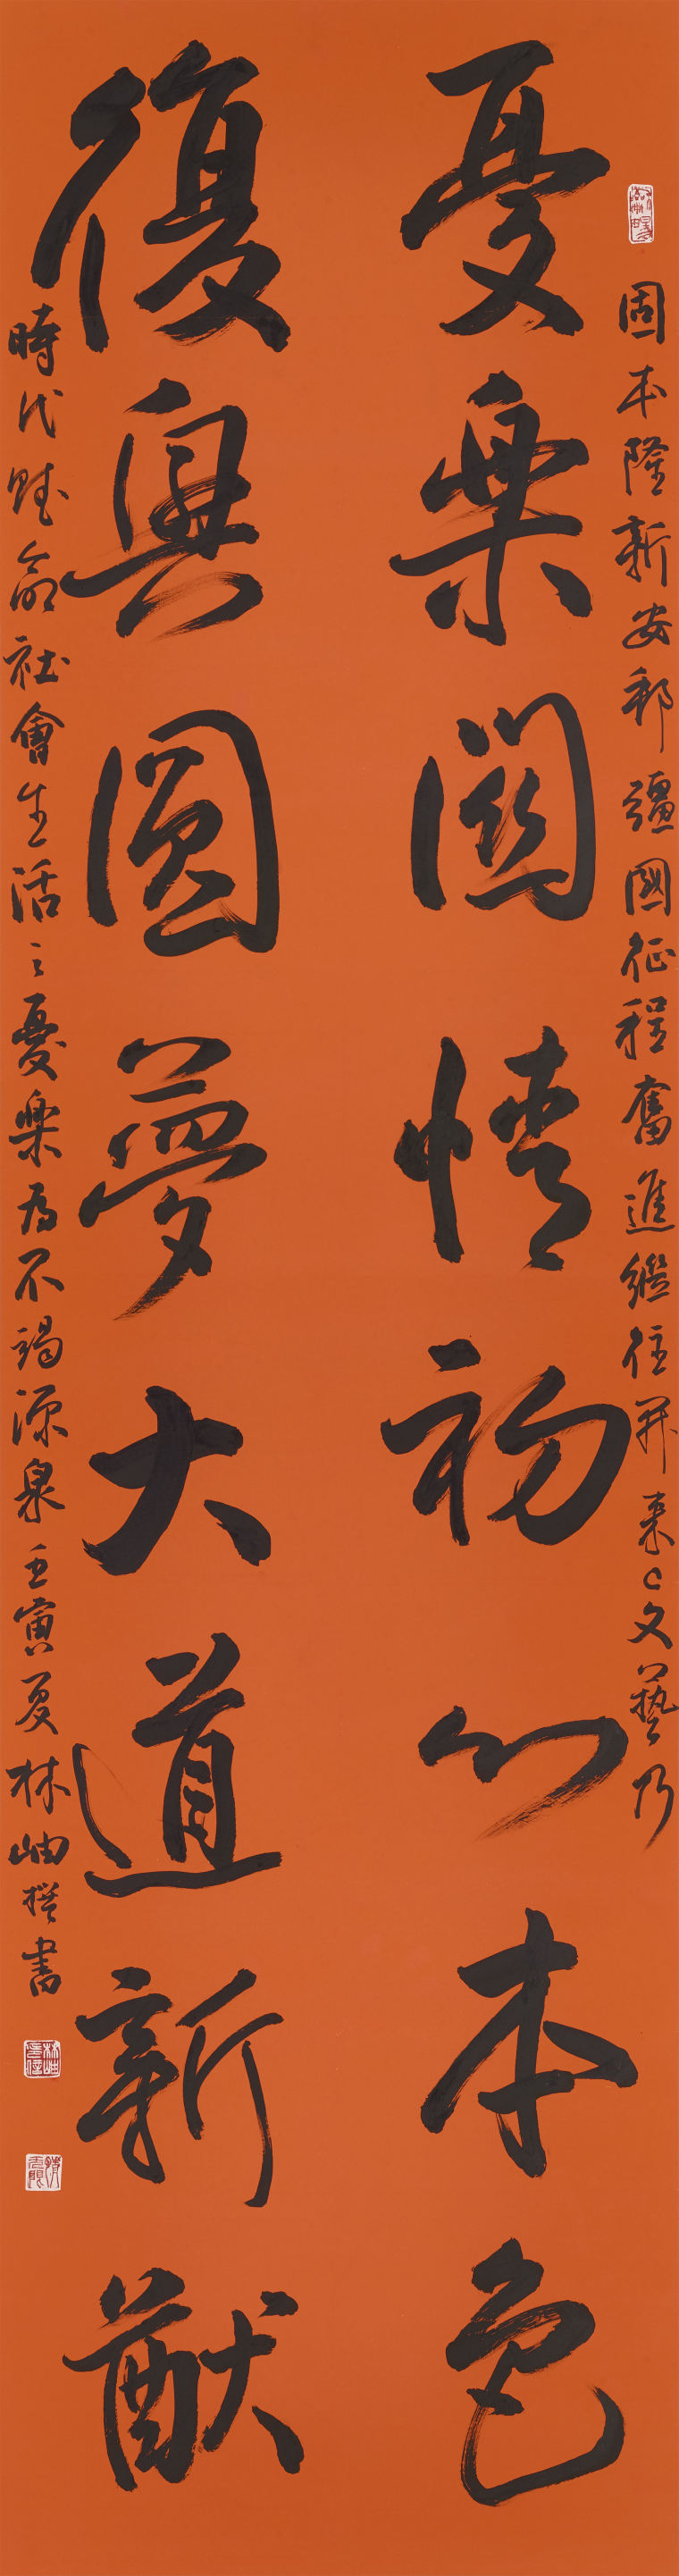 固本隆新安邦彊國征程奮進繼往開來文藝乃
憂樂關情初心本色
復興圓夢大道新猷
時代賦命社會生活之憂樂為不竭源泉壬寅夏林岫撰書